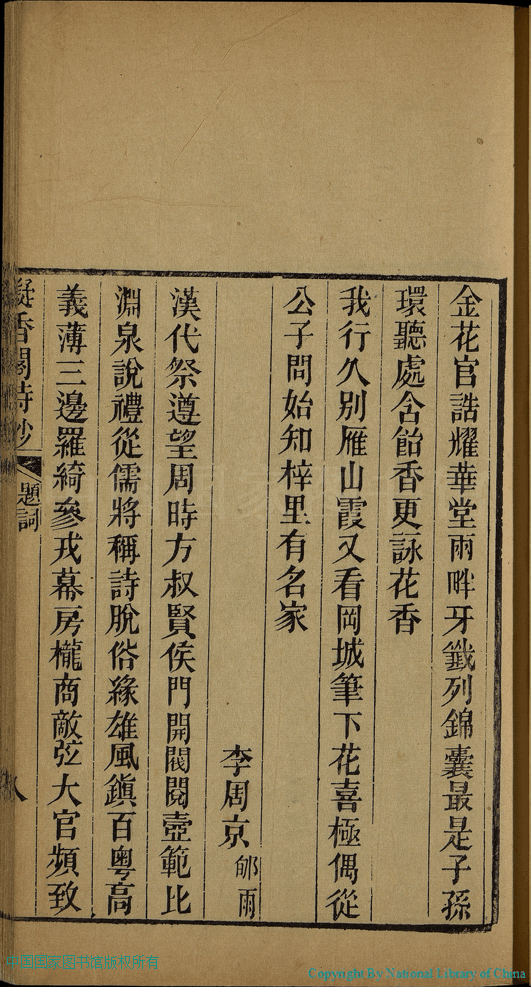 金花官誥耀華堂雨畔牙籤列錦囊最是子孫
環聽處含飴香更詠花香
我行久別雁山霞又看岡城筆下花喜極偶從
公子問始知梓里有名家
李周京郇雨
漢代祭遵望周時方叔賢侯門開閥閱壼範比
淵泉說禮從儒將稱詩脫俗緣雄風鎭百粵高
義薄三邊羅綺參戎幕房櫳商敵弦大官頻致
凝香閣詩鈔
題詞
八
中国国家图书馆版权所有
Copyright By National Library of China